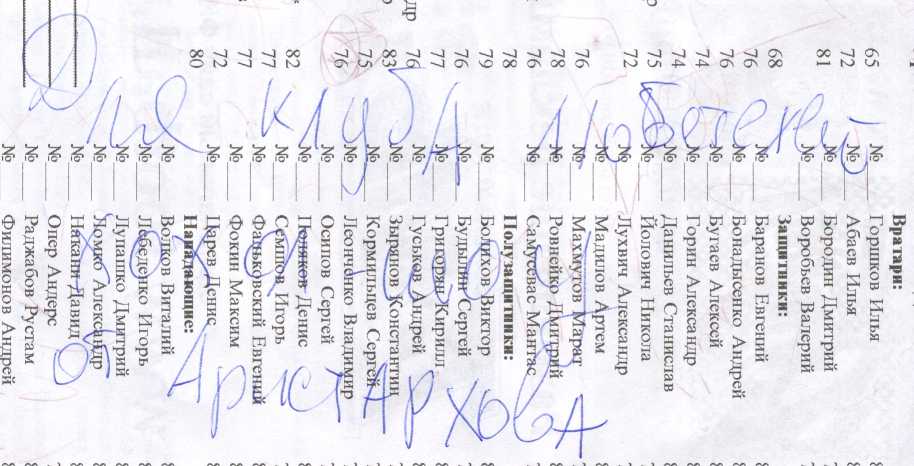 Вратари:
65
72
81
68
76
76
74
74
75
72
76
78
76
68
79
76
77
76
83
75
76
82
77
77
72
80
№ Горшков Илья
№ Абаев Илья
№ Бородин Дмитрий
№ Воробьев Валерий
Защитники:
№ Баранов Евгений
№ Бонадысенко Андрей
№ Бугаев Алексей
№ Горин Александр
№ Данильев Станислав
№ Йолович Никола
№ Лухвич Александр
№ Мадилов Артем
№ Махмутов Марат
№ Ровнейко Дмитрий
№ Самусевас Мантас
Полузащитники:
№ Болихов Виктор
№ Будылин Сергей
№ Григорян Кирилл
№ Гуськов Андрей
№ Зырянов Константин
№ Кормильцев Сергей
№ Леонченко Владимир
№ Осипов Сергей
№ Денис
№ Семшов Игорь
№ Фаньковский Евгений
№ Фокин Максим
№ Царев Денис
Нападающие:
№ Волков Виталий
№ Лебеденко Игорь
№ Лупашко Дмитрий
№ Ломко Александр
№ Накани Давид
№ Опер Андерс
№ Раджабов Рустам
№ Филимонов Андрей
клубА Любетелей
хоха-шоу
от Аристархова